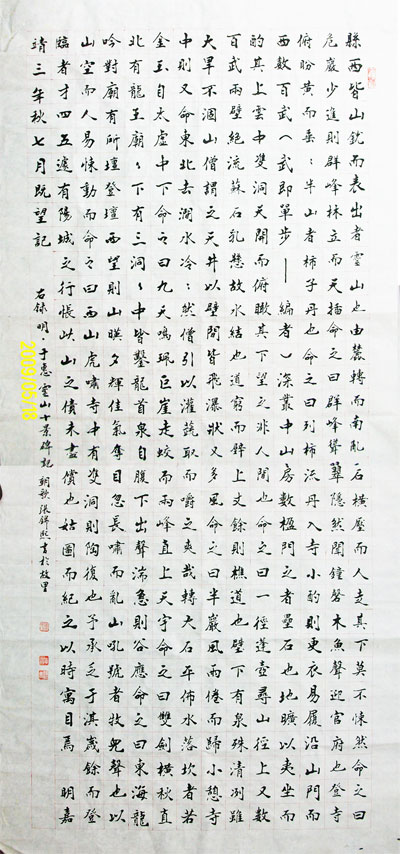 縣西皆山銳而表出者靈山也由麓轉而南亂石橫壓而人走其下莫不悚然命之曰
危巖少進則群峰林立而天插命之曰群峰聳翠隱然聞鐘磬木魚聲迎官府也登寺
俯盼黃而垂垂半山者柿子丹也命之曰列柿流丹入寺小酌則更衣易履沿山門而
西數百武（武即單步——編者）深叢中山房數楹門之者壘石也地曠以夷坐而
酌其上雲中雙洞天開而俯瞰其下望之非人間也命之曰一徑蓬壺尋山徑上又數
百武兩壁絕流蘇石乳懸故水結也道窮而壁上丈餘則樵道也壁下有泉殊清冽雖
大旱不涸山僧謂之天井以壁間皆飛瀑狀又多風命之曰半巖風雨倦而歸小憩寺
中則又命東北去澗水冷冷然僧引以灌蔬取而嚼之爽哉轉大石平佈水落坎者若
金玉自太虛中下命之曰九天鳴珮巨崖走蛟而兩峰直上天宇命之曰雙劍橫秋直
北有龍王廟廟下有三洞洞中皆鑿龍首泉自腹下出聲湍急則谷應命之曰東海龍
吟對廟有所壇登壇西望則山暎夕輝佳氣奪目忽長嘯而亂山吼號者牧兒聲也以
山空而人易悚動而命之曰西山虎嘯寺中有雙洞則陶復也予承乏于淇歲餘而登
臨者才四五遽有陽城之行悵此山之債未盡償也姑圖而紀之以時寓目焉 明嘉
靖三年秋七月既望記
右錄明·于惠靈山十景碑記 朝歌張錦熙書於故里
2009/05/18